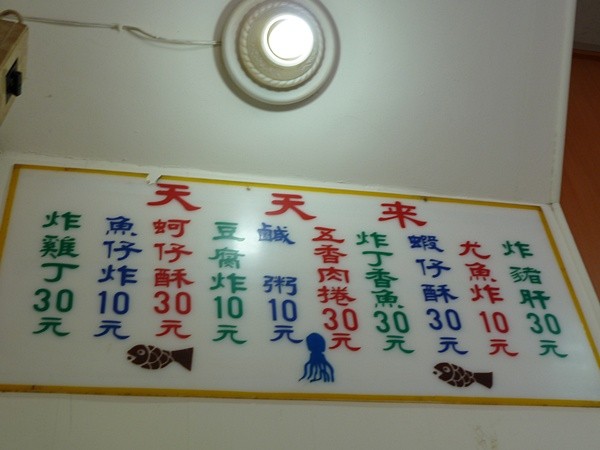 天天来
炸豬肝30元
尤魚炸10元
蝦仔酥30元
炸丁香魚30元
五香肉捲30元
鹹粥10元
豆腐炸10元
蚵仔酥30元
魚仔炸10元
炸雞丁30元